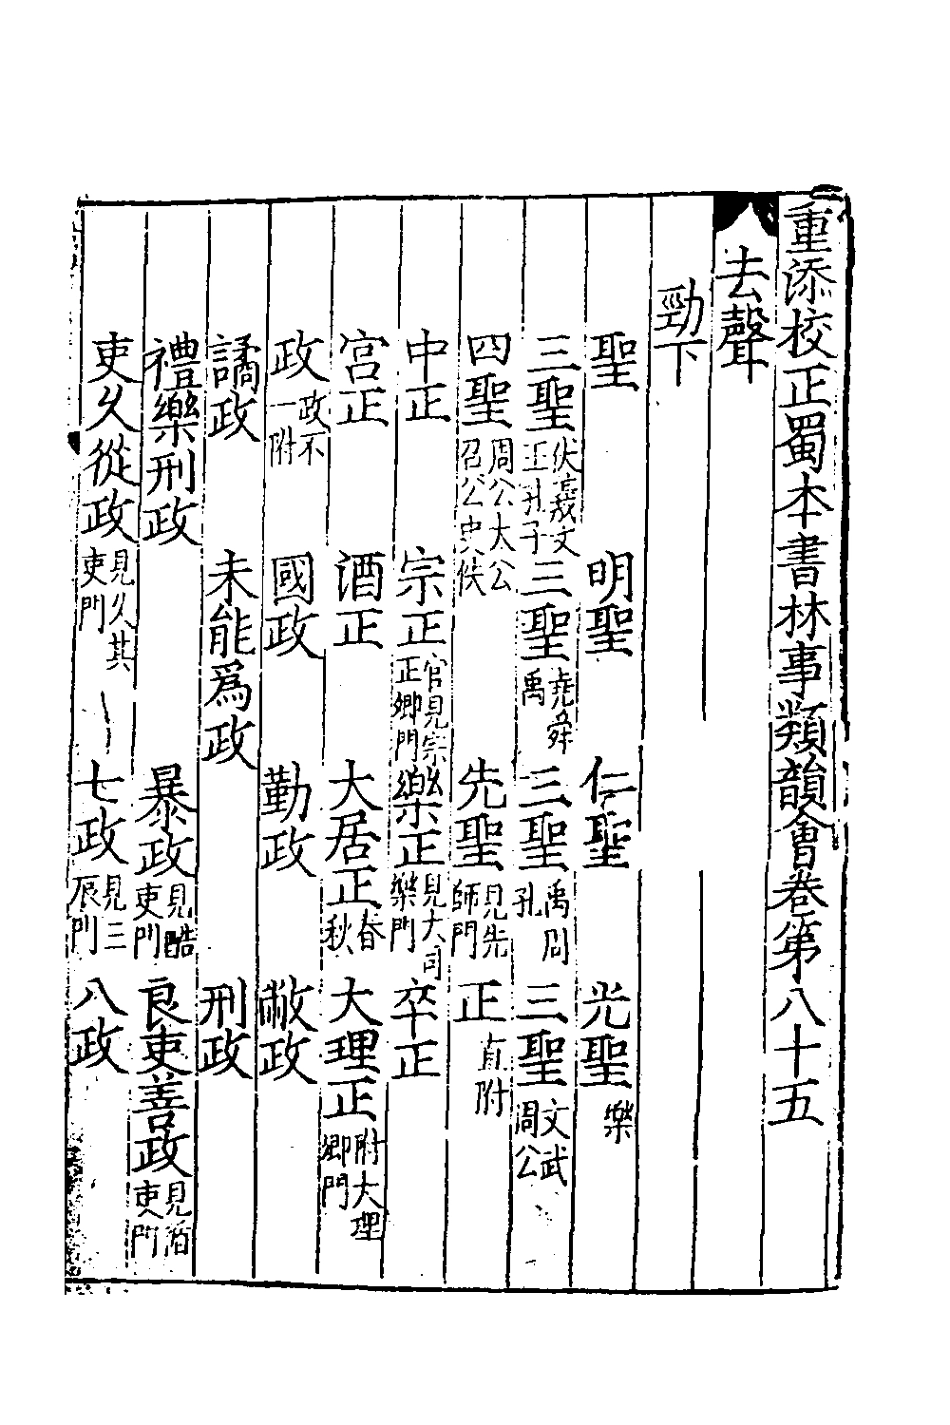 重添校正蜀本書林事類韻會卷第八十五
去聲
勁下
聖 明聖 仁聖 光聖樂
三聖伏羲文王孔子 三聖堯舜禹 三聖禹周孔 三聖文武周公
四聖周公太公召公史佚 先聖見先師門 正直附
中正 宗正官見宗正卿門 樂正見大司樂門 卒正
宫正 酒正 大居正春秋 大理正附大理卿門
政政不一附 國政 勤政 敝政
譎政 未能爲政 刑政
禮樂刑政 暴政見酷吏門 良吏善政見循吏門
吏久從政見久其吏門 七政見三辰門 八政